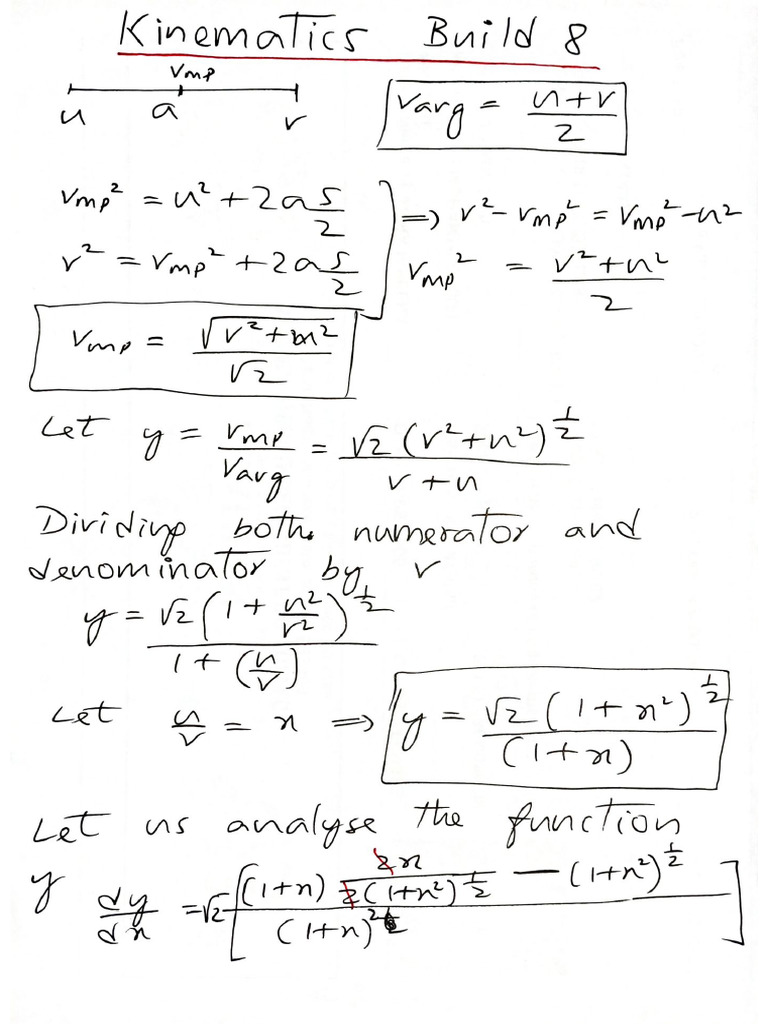 Kinematics Build 8
vmp
u a v
varg = u+v/2
vmp² = u² + 2a s/2
v² = vmp² + 2a s/2
⇒ v² - vmp² = vmp² - u²
vmp² = v²+u²/2
vmp = √v²+u²/√2
Let y = vmp/varg = √2 (v²+u²)^1/2 / v+u
Dividing both numerator and
denominator by v
y = √2 (1 + u²/v²)^1/2 / 1 + (u/v)
Let u/v = x ⇒ y = √2 (1 + x²)^1/2 / (1 + x)
Let us analyse the function
y dy/dx = √2 [(1+x) 2x/2(1+x²)^1/2 - (1+x²)^1/2 / (1+x)²]